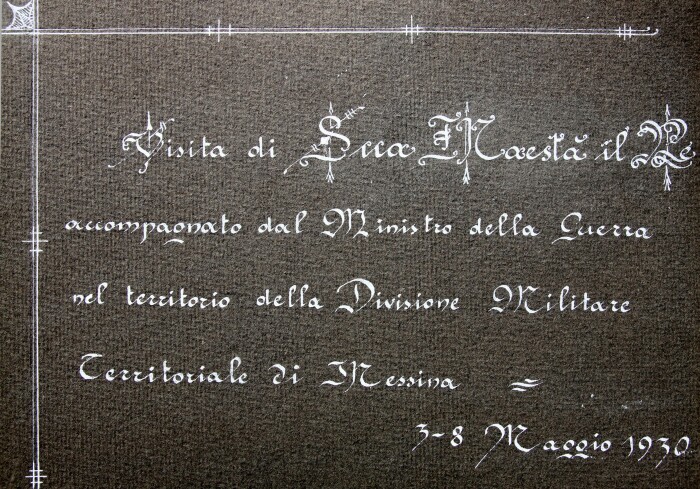 Visita di Sua Maestà il Re
accompagnato dal Ministro della Guerra
nel territorio della Divisione Militare
Territoriale di Messina =
3-8 Maggio 1930